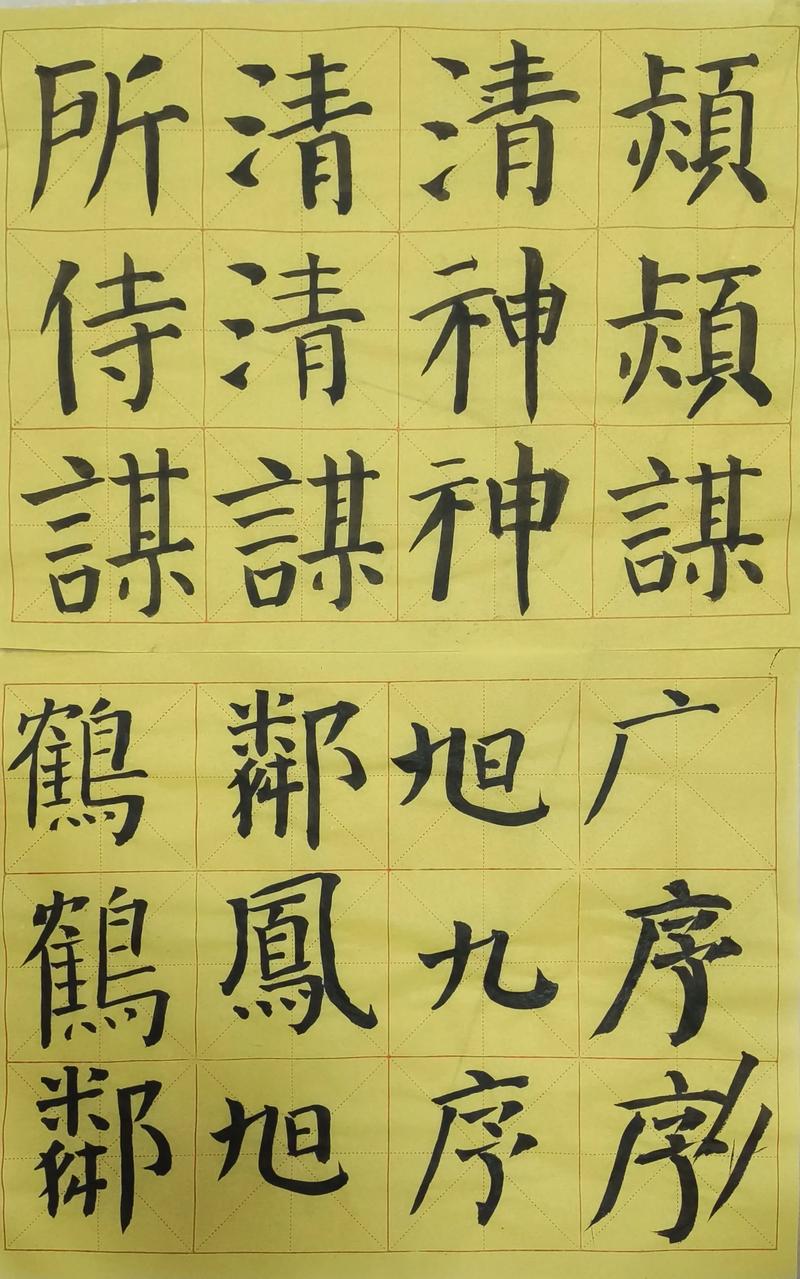 所清清熲
侍清神熲
謀謀神謀
鶴鄰旭广
鶴鳳九序
鄰旭序序